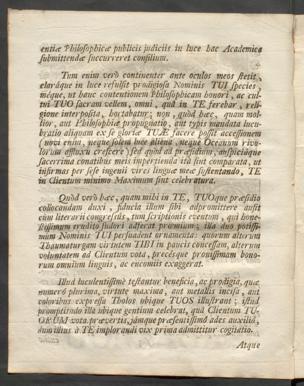 entiæ Philosophicæ publicis judiciis in luce hac Academica
submittendæ succurreret consilium.
Tum enim verò continenter ante oculos meos stetit,
claráque in luce refulsit prodigiosa Nominis TUI species;
méque, ut hanc contentionem Philosophicam honori, ac cul-
tui TUO sacram vellem, omni, quâ in TE ferebar, reli-
gione interposita, hortabatur; non, quòd hæc, quam mo-
lior, aut Philosophiæ propugnatio, aut typis mandata lucu-
bratio aliquam ex se gloriæ TUÆ facere possit accessionem
( nova enim, neque solem luce aliena, neque Oceanum rivu-
lorum affluxu crescere ) sed quòd ab præsidiis, auspiciisque
sacerrima conatibus meis impertienda ità sint comparata, ut
infirmas per sese ingenii vires linguæ meæ sustentando, TE
in Clientum minimo Maximum sint celebratura.
Quòd verò hæc, quam mihi in TE, TUOque præsidio
collocandam duxi, fiducia illum sibi adpromittere ausit
cùm literarii congressûs, tum scriptionis eventum, qui hone-
stissimum erudito sudori adferat præmium; illa duo potissi-
mùm Nominis TUI persuadent ornamenta: quorum alterum
Thaumaturgam virtutem TIBI in paucis concessam, alterum
voluntatem ad Clientum vota, precésque pronissimam bono-
rum omnium linguis, ac encomiis exaggerat.
Illud luculentissimè testantur beneficia, ac prodigia, quæ
numerô plurima, virtute maxima, aut metallis incisa, aut
coloribus expressa Tholos ubique TUOS illustrant; istud
promptitudo illa ubique gentium celebrat, quâ Clientum TU-
ORUM vota prævertis, jámque præsentissimô ades auxiliô,
dum illius à TE implorandi vix prima admittitur cogitatio.
Atque